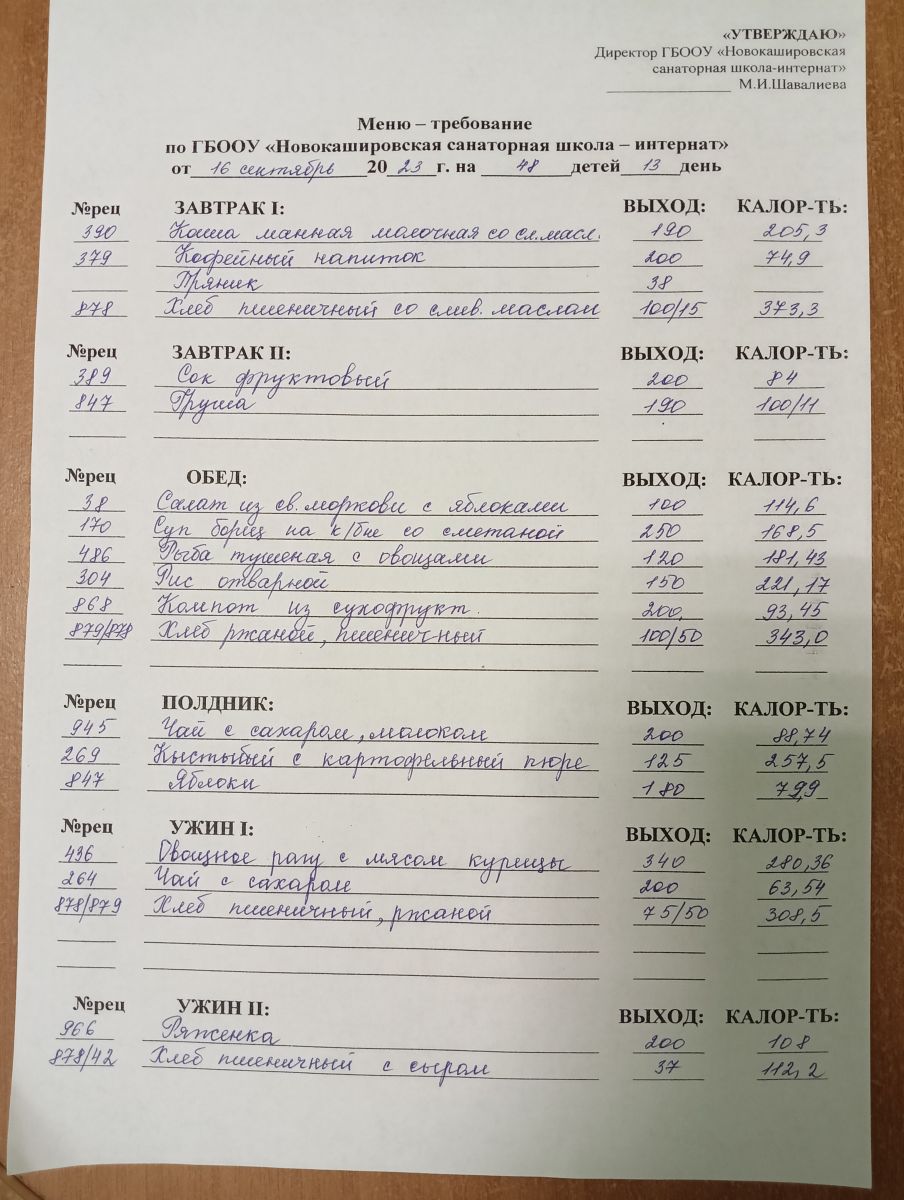 «УТВЕРЖДАЮ»
Директор ГБООУ «Новокашировская
санаторная школа-интернат»
М.И.Шавалиева
Меню – требование
по ГБООУ «Новокашировская санаторная школа – интернат»
от 16 сентябрь 2023 г. на 48 детей 13 день
№рец ЗАВТРАК I: ВЫХОД: КАЛОР-ТЬ:
390 Каша манная молочная со сл.масл. 190 205,3
379 Кофейный напиток 200 74,9
Пряник 38
878 Хлеб пшеничный со слив. маслом 100/15 373,3
№рец ЗАВТРАК II: ВЫХОД: КАЛОР-ТЬ:
389 Сок фруктовый 200 84
847 Груша 190 100/11
№рец ОБЕД: ВЫХОД: КАЛОР-ТЬ:
38 Салат из св.моркови с яблоками 100 114,6
170 Суп борщ на к/бне со сметаной 250 168,5
486 Рыба тушеная с овощами 120 181,43
304 Рис отварной 150 221,17
868 Компот из сухофрукт. 200 93,45
879/878 Хлеб ржаной, пшеничный 100/50 343,0
№рец ПОЛДНИК: ВЫХОД: КАЛОР-ТЬ:
945 Чай с сахаром, молоком 200 88,74
269 Кыстыбый с картофельный пюре 125 257,5
847 Яблоки 180 79,9
№рец УЖИН I: ВЫХОД: КАЛОР-ТЬ:
436 Овощное рагу с мясом курицы 340 280,36
264 Чай с сахаром 200 63,54
878/879 Хлеб пшеничный, ржаной 75/50 308,5
№рец УЖИН II: ВЫХОД: КАЛОР-ТЬ:
966 Ряженка 200 108
878/42 Хлеб пшеничный с сыром 37 112,2